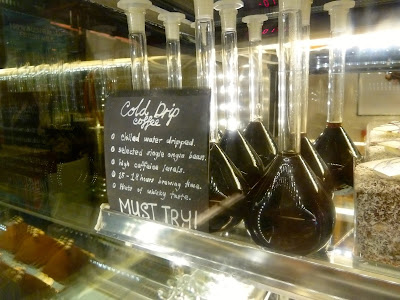 Cold Drip
coffee
chilled water dripped.
selected single origin beans.
high caffeine levels.
18-24 hours brewing time.
Hints of whisky taste.
MUST TRY!